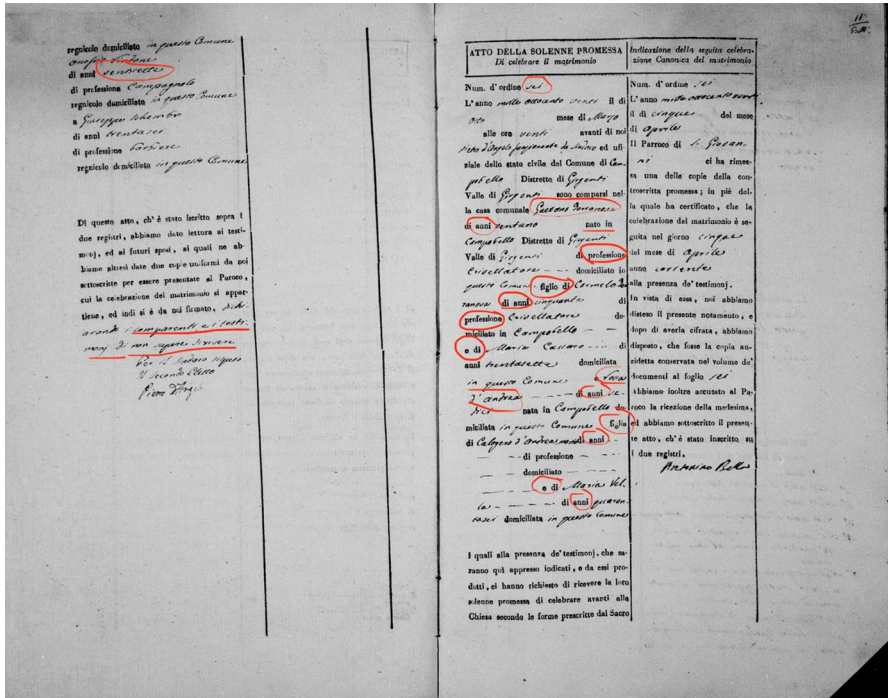 regnicolo domiciliato in questo Comune
di anni ventisette
di professione Campagnolo
regnicolo domiciliato in questo Comune
a Giuseppe
di anni trentasei
di professione barbiere
regnicolo domiciliato in questo Comune
Di questo atto, ch'è stato iscritto sopra i
due registri, abbiamo dato lettura ai testi-
monj, ed ai futuri sposi, ai quali ne ab-
biamo altresì date due copie uniformi da noi
sottoscritte per essere presentate al Paroco,
cui la celebrazione del matrimonio si appar-
tiene, ed indi si è da noi firmato, dichi
arando i comparenti e i testi
monj di non sapere scrivere
Per il Sindaco
Il Secondo Eletto
Pietro D'Angelo
11
ATTO DELLA SOLENNE PROMESSA
Di celebrare il matrimonio
Num. d'ordine sei
L'anno mille ottocento venti il dì
otto mese di Marzo
alle ore venti avanti di noi
Pietro d'Angelo ed uffi-
ziale dello stato civile del Comune di Cam
pobello Distretto di Girgenti
Valle di Girgenti sono comparsi nel-
la casa comunale Gaetano
di anni ventuno nato in
Campobello Distretto di Girgenti
Valle di Girgenti di professione
Crivellatore domiciliato in
questo Comune figlio di Carmelo
di anni cinquanta di
professione Crivellatore do-
miciliato in Campobello
e di Maria di
anni trentasette domiciliata
in questo Comune e Rosa
d'Andrea di anni se
dici nata in Campobello do-
miciliata in questo Comune figlia
di Calogero d'Andrea di anni
di professione
domiciliato
e di Maria Vel
la di anni quaran
tasei domiciliata in questo Comune
I quali alla presenza de' testimonj, che sa-
ranno quì appresso indicati, e da essi pro-
dotti, ci hanno richiesto di ricevere la loro
solenne promessa di celebrare avanti alla
Chiesa secondo le forme prescritte dal Sacro
Indicazione della seguita celebra-
zione Canonica del matrimonio
Num. d'ordine sei
L'anno mille ottocento venti
il dì cinque del mese
di aprile
Il Parroco di S. Giovan
ni ci ha rimes-
sa una delle copie della con-
troscritta promessa; in piè del-
la quale ha certificato, che la
celebrazione del matrimonio è se-
guita nel giorno cinque
del mese di aprile
anno corrente
alla presenza de' testimonj.
In vista di essa, noi abbiamo
disteso il presente notamento, e
dopo di averla cifrata, abbiamo
disposto, che fosse la copia an-
zidetta conservata nel volume de'
documenti al foglio sei
Abbiamo inoltre accusato al Pa-
roco la ricezione della medesima,
ed abbiamo sottoscritto il presen-
te atto, ch'è stato inscritto su
i due registri.
Bello